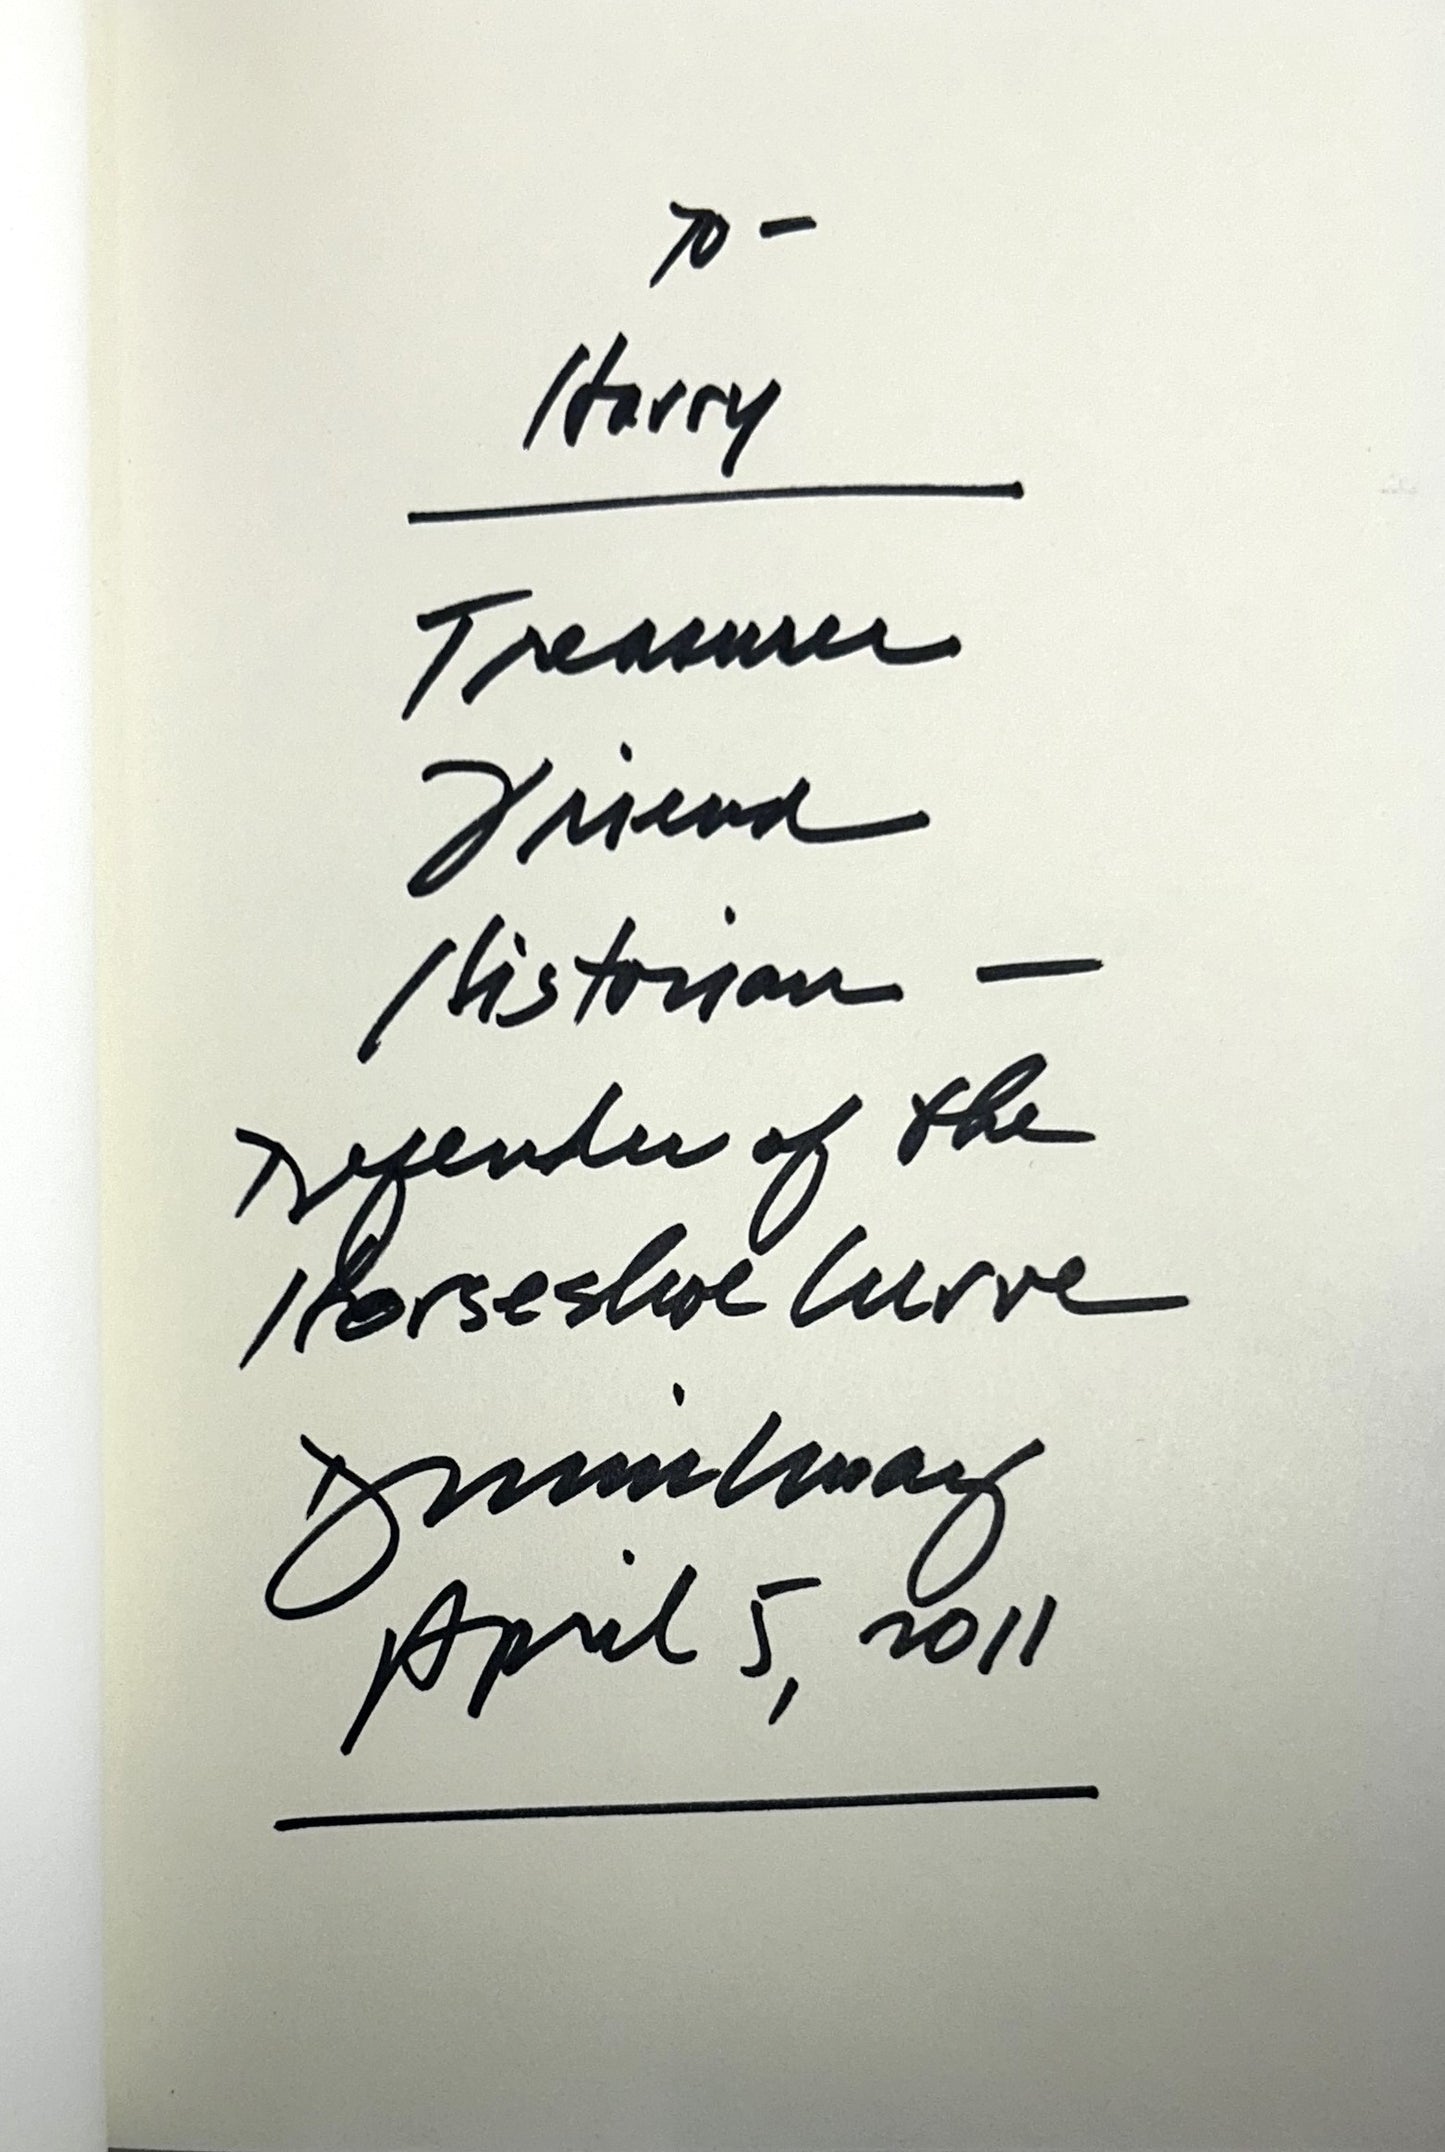 To —
Harry
Treasurer
Friend
Historian —
Defender of the
Horseshoe Curve
April 5, 2011